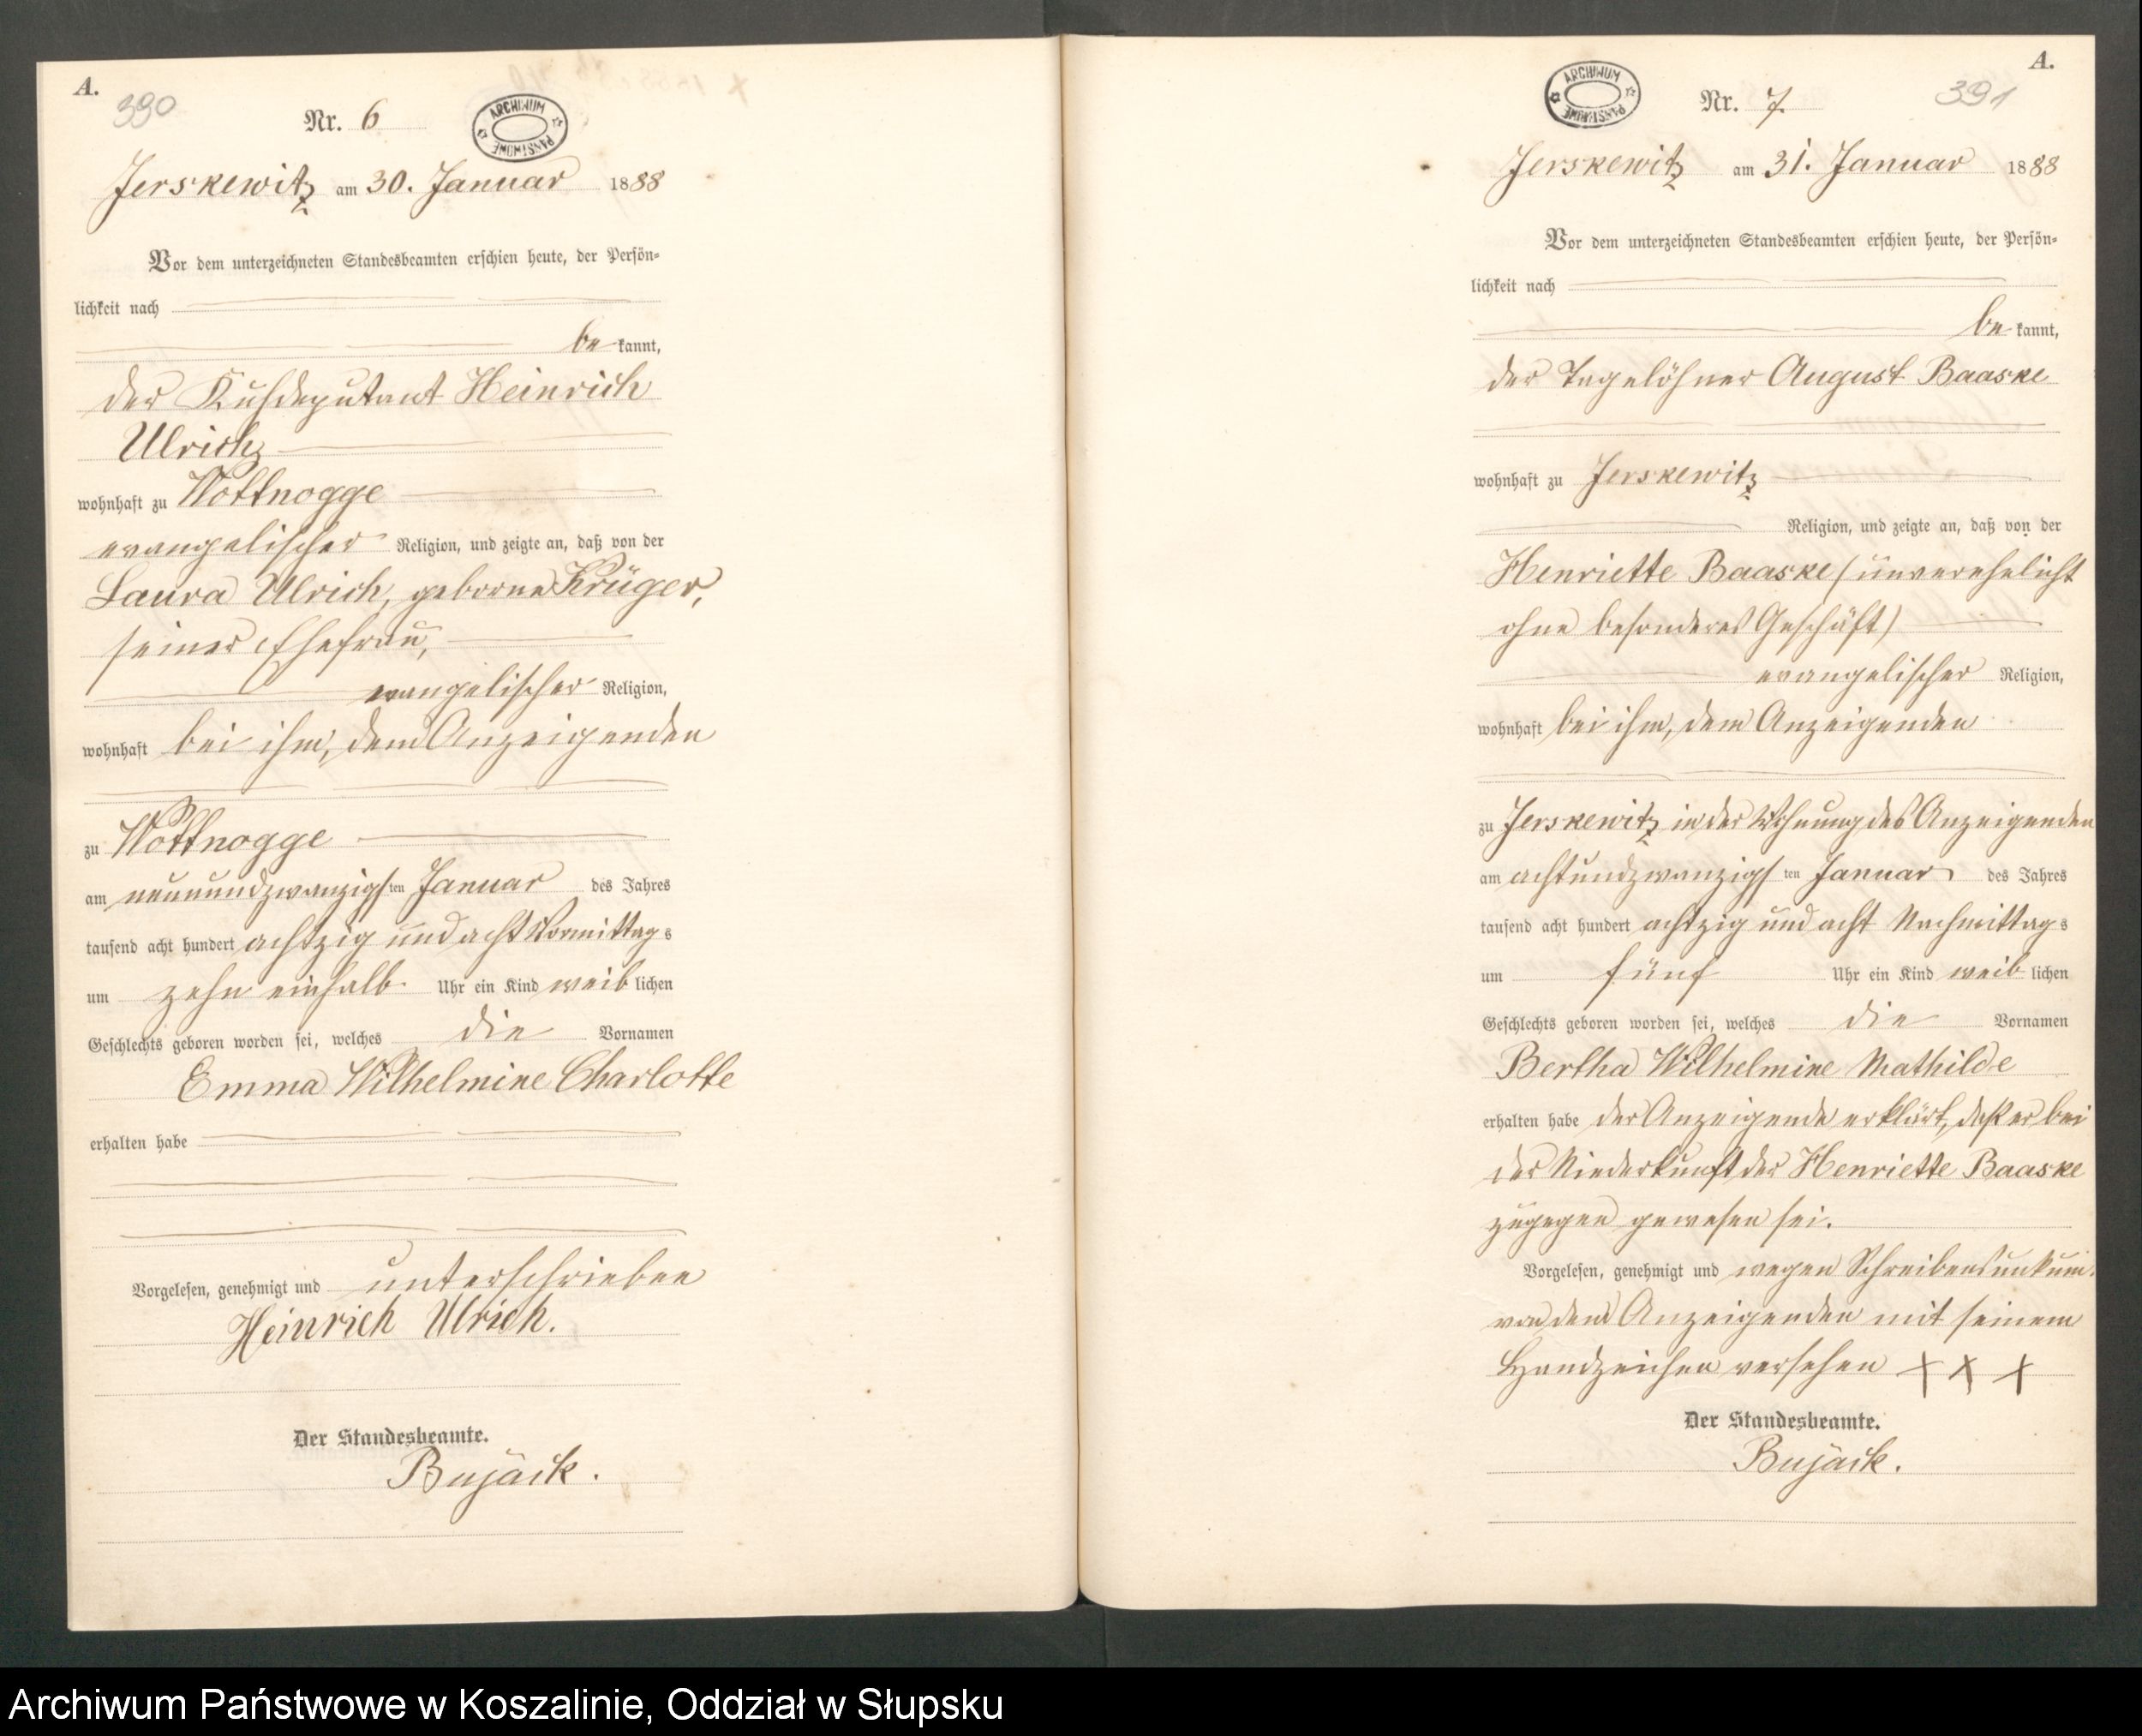 A.
390
Nr. 6
ARCHIWUM PAŃSTWOWE
Jerskewitz am 30. Januar 1888
Vor dem unterzeichneten Standesbeamten erschien heute, der Persön-
lichkeit nach
be kannt,
der Kuhdeputant Heinrich
Ulrich,
wohnhaft zu Wottnogge
evangelischer Religion, und zeigte an, daß von der
Laura Ulrich, geborne Krüger,
seiner Ehefrau,
evangelischer Religion,
wohnhaft bei ihm, dem Anzeigenden
zu Wottnogge
am neunundzwanzigsten Januar des Jahres
tausend acht hundert achtzig und acht Vormittags
um zehn einhalb Uhr ein Kind weiblichen
Geschlechts geboren worden sei, welches die Vornamen
Emma Wilhelmine Charlotte
erhalten habe
Vorgelesen, genehmigt und unterschrieben
Heinrich Ulrich.
Der Standesbeamte.
Bujäck.
A.
391
Nr. 7.
ARCHIWUM PAŃSTWOWE
Jerskewitz am 31. Januar 1888
Vor dem unterzeichneten Standesbeamten erschien heute, der Persön-
lichkeit nach
be kannt,
der Tagelöhner August Baaske
wohnhaft zu Jerskewitz
Religion, und zeigte an, daß von der
Henriette Baaske (unverehelicht
ohne besonderes Geschäft)
evangelischer Religion,
wohnhaft bei ihm, dem Anzeigenden
zu Jerskewitz in der Wohnung des Anzeigenden
am achtundzwanzigsten Januar des Jahres
tausend acht hundert achtzig und acht Nachmittags
um fünf Uhr ein Kind weiblichen
Geschlechts geboren worden sei, welches die Vornamen
Bertha Wilhelmine Mathilde
erhalten habe der Anzeigende erklärt, daß er bei
der Niederkunft der Henriette Baaske
zugegen gewesen sei.
Vorgelesen, genehmigt und wegen Schreibensunkun.
von dem Anzeigenden mit seinem
Handzeichen versehen + + +
Der Standesbeamte.
Bujäck.
Archiwum Państwowe w Koszalinie, Oddział w Słupsku